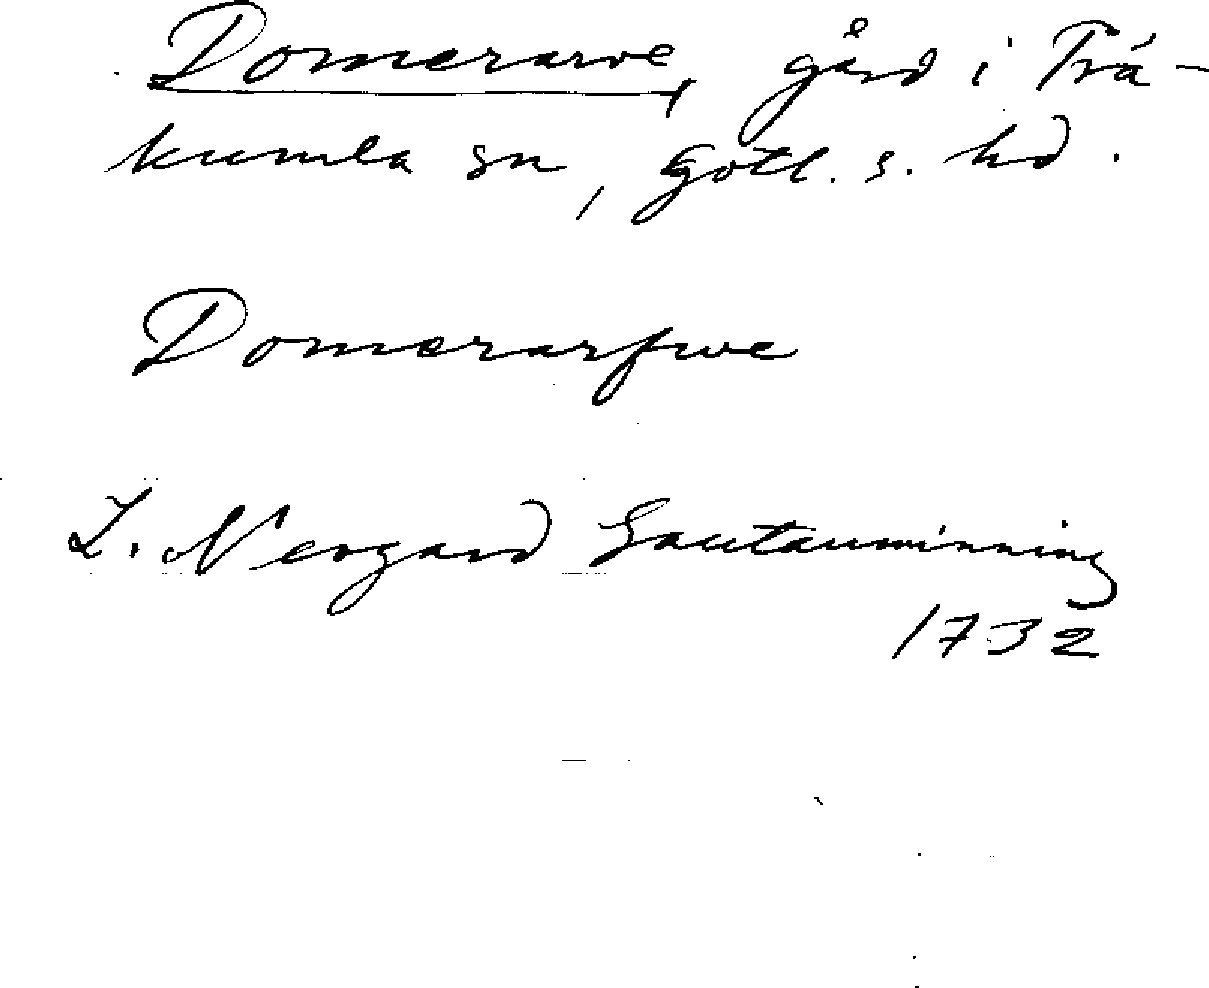 Domerarve, gård i Trä-
kumla sn, Gotl. s. hd.
Domerarfwe
L. Neogard Gautauminning
1732